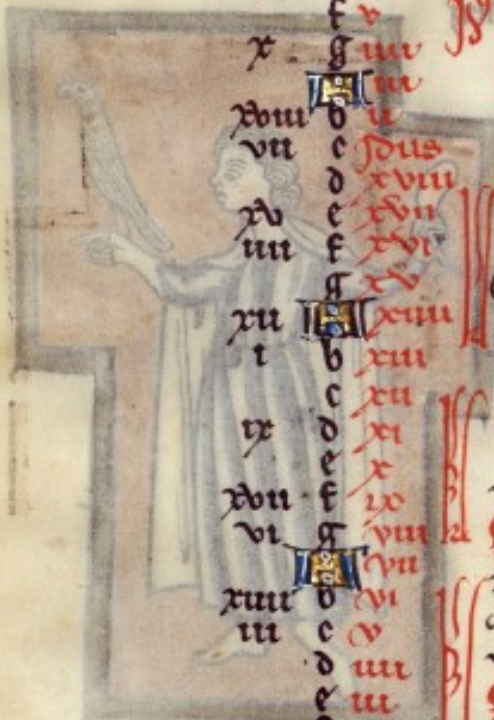 f v
x g iiii
A iii
xviii b ii
vii c Idus
d xviii
xv e xvii
iiii f xvi
g xv
xii A xiiii
i b xiii
c xii
ix d xi
e x
xvii f ix
vi g viii
A vii
xiiii b vi
iii c v
d iiii
e iii